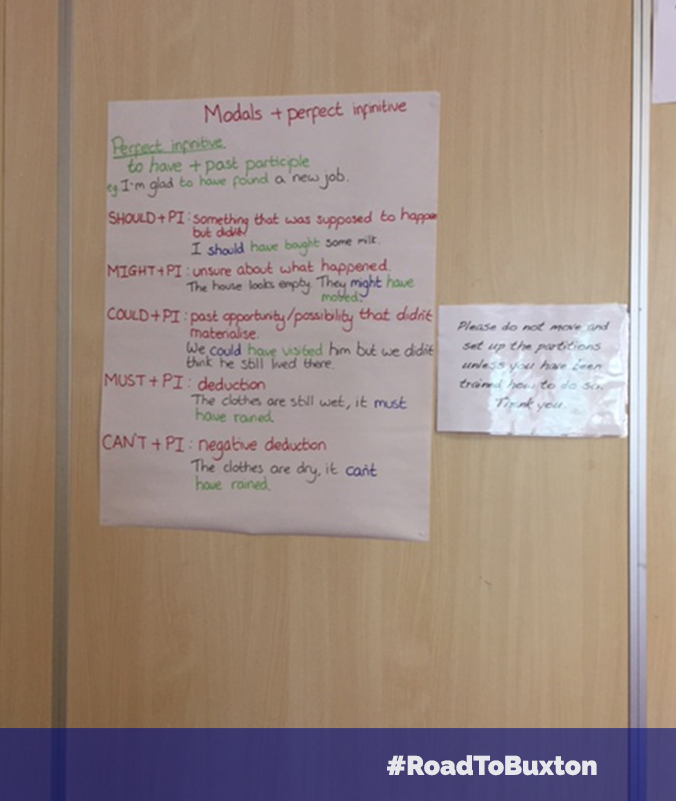 Modals + perfect infinitive
Perfect infinitive
to have + past participle
eg. I'm glad to have found a new job.
SHOULD + PI : something that was supposed to happen
but didn't
I should have bought some milk.
MIGHT + PI : unsure about what happened.
The house looks empty. They might have
moved.
COULD + PI : past opportunity/possibility that didn't
materialise.
We could have visited him but we didn't
think he still lived there.
MUST + PI : deduction
The clothes are still wet, it must
have rained.
CAN'T + PI : negative deduction
The clothes are dry, it can't
have rained.
Please do not move and
set up the partitions
unless you have been
trained how to do so.
Thank you.
#RoadToBuxton